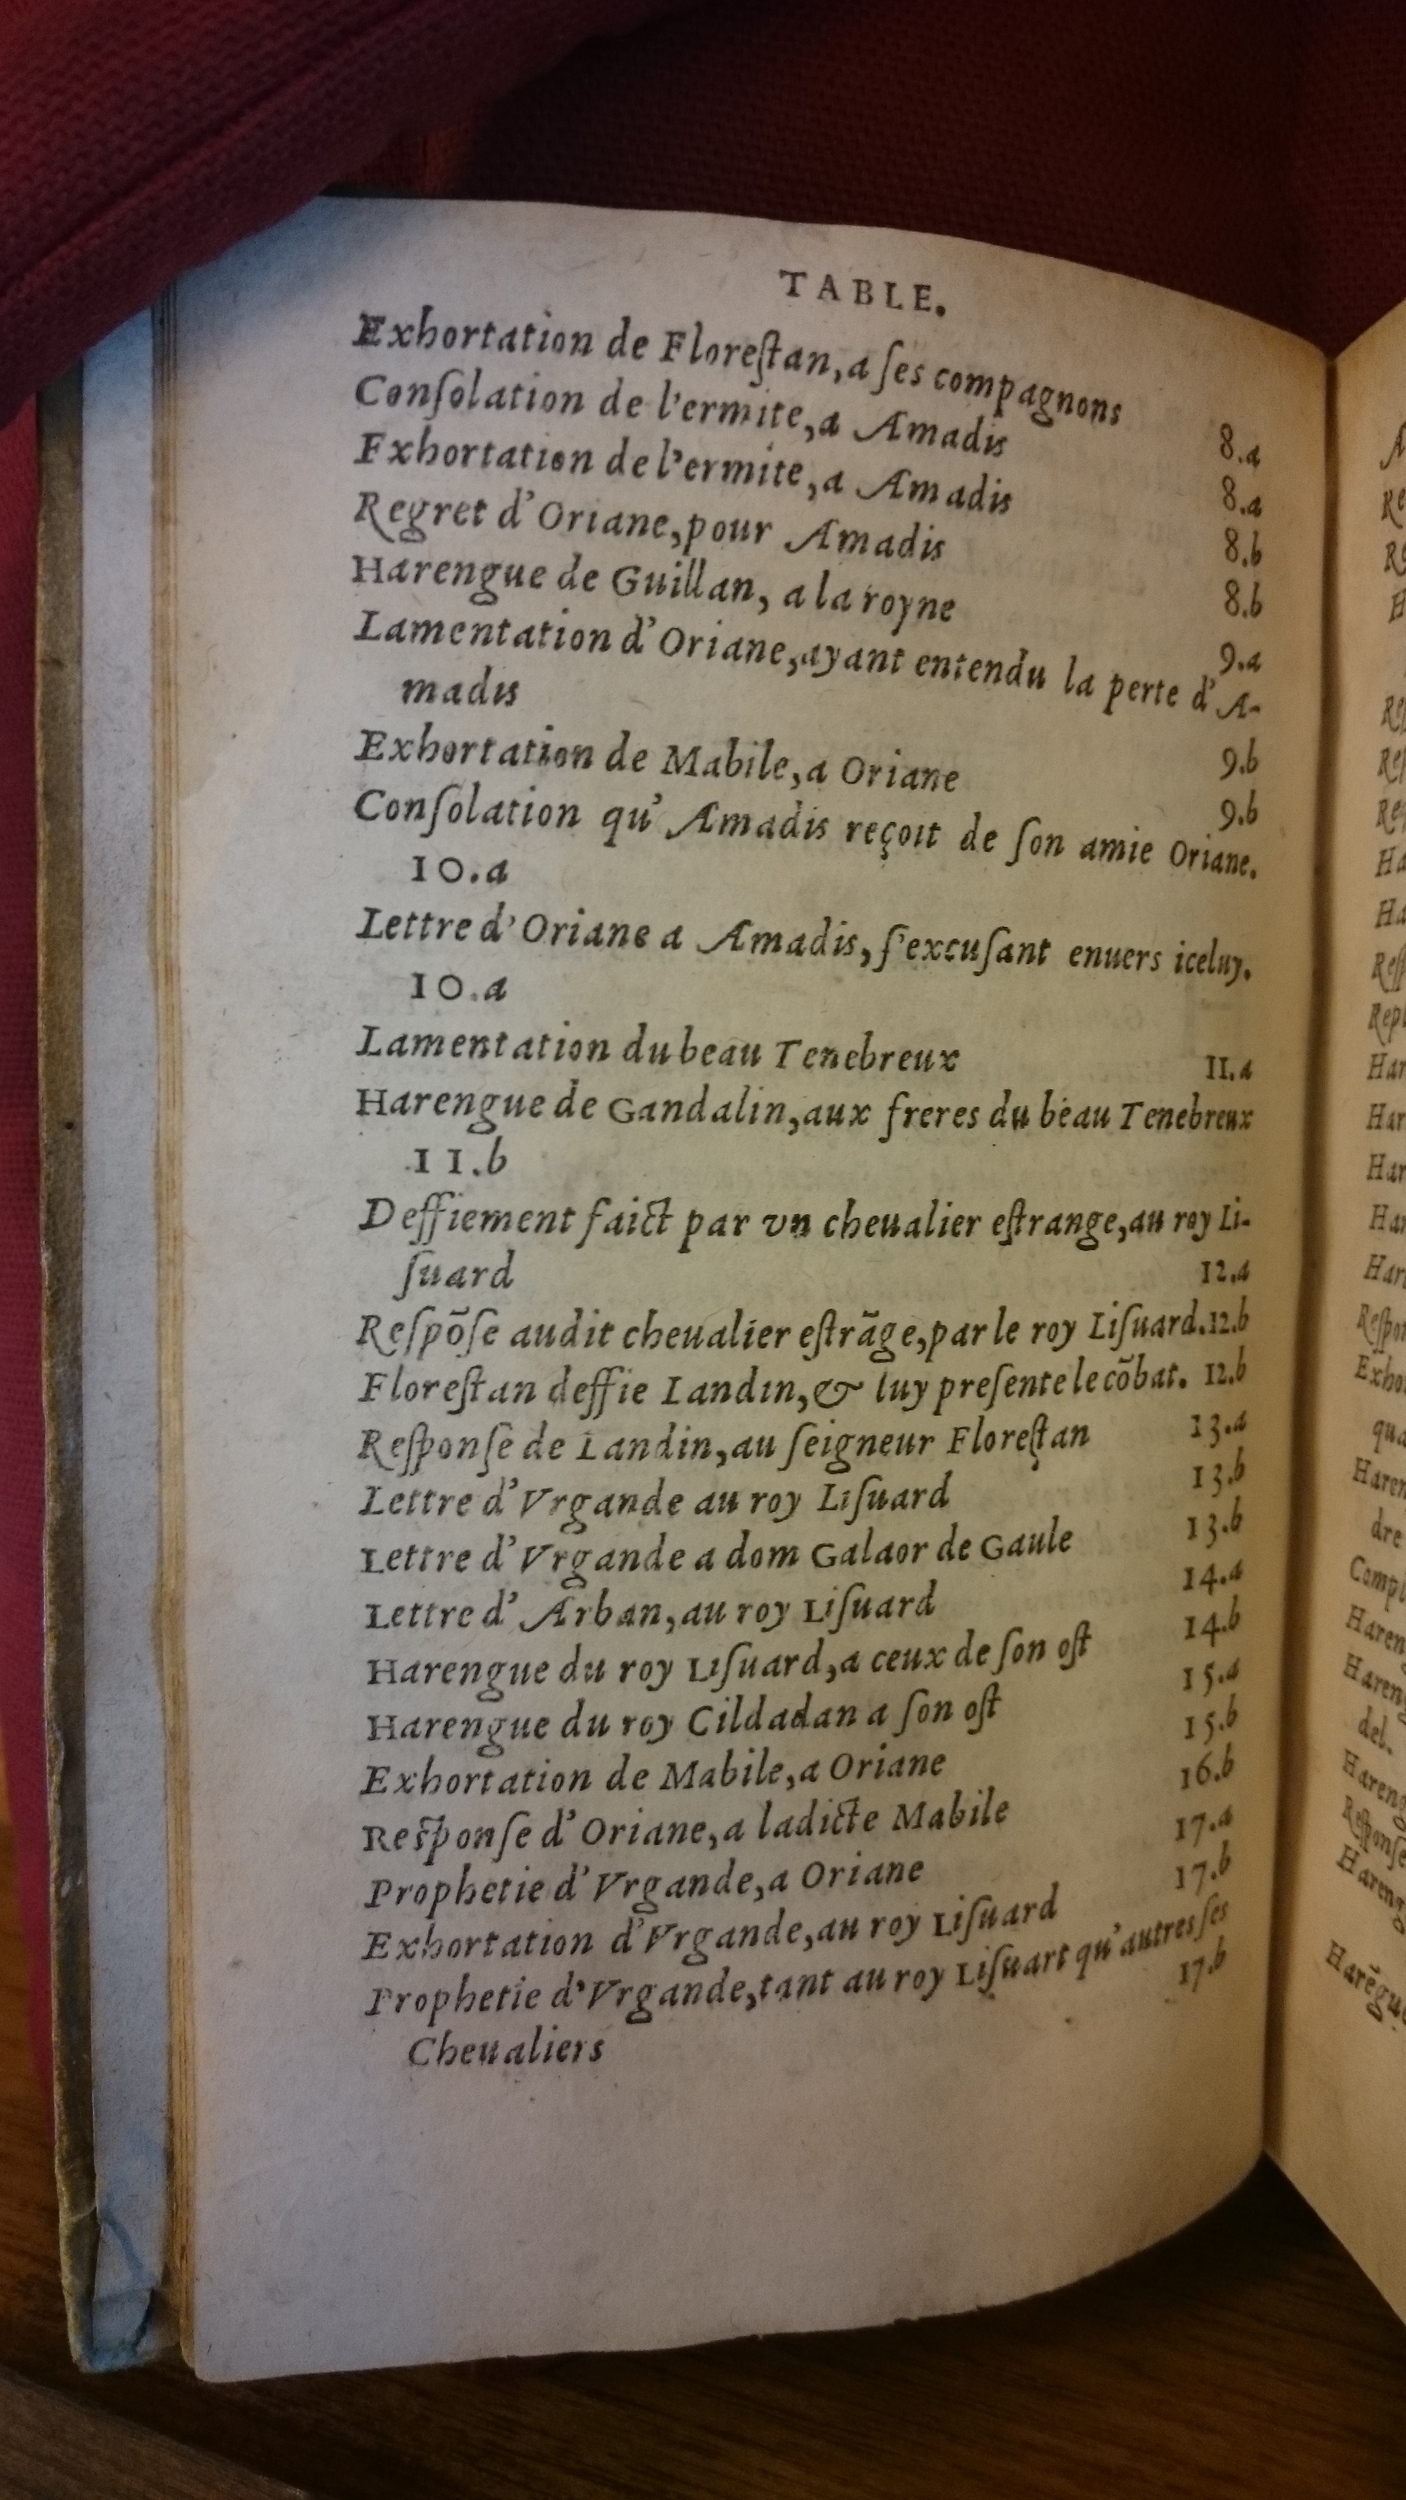 TABLE.
Exhortation de Floreſtan, a ſes compagnons 8.a
Conſolation de l'ermite, a Amadis 8.a
Exhortation de l'ermite, a Amadis 8.b
Regret d'Oriane, pour Amadis 8.b
Harengue de Guillan, a la royne 9.a
Lamentation d'Oriane, ayant entendu la perte d'A-
madis 9.b
Exhortation de Mabile, a Oriane 9.b
Conſolation qu'Amadis reçoit de ſon amie Oriane.
10.a
Lettre d'Oriane a Amadis, ſ'excuſant enuers iceluy.
10.a
Lamentation du beau Tenebreux 11.a
Harengue de Gandalin, aux freres du beau Tenebreux
11.b
Deffiement faict par vn cheualier eſtrange, au roy Li-
ſuard 12.a
Reſpõſe audit cheualier eſtrãge, par le roy Liſuard. 12.b
Floreſtan deffie Landin, & luy preſente le cõbat. 12.b
Reſponſe de Landin, au ſeigneur Floreſtan 13.a
Lettre d'Vrgande au roy Liſuard 13.b
Lettre d'Vrgande a dom Galaor de Gaule 13.b
Lettre d'Arban, au roy Liſuard 14.a
Harengue du roy Liſuard, a ceux de ſon oſt 14.b
Harengue du roy Cildadan a ſon oſt 15.a
Exhortation de Mabile, a Oriane 15.b
Reſponſe d'Oriane, a ladicte Mabile 16.b
Prophetie d'Vrgande, a Oriane 17.a
Exhortation d'Vrgande, au roy Liſuard 17.b
Prophetie d'Vrgande, tant au roy Liſuart qu'autres ſes
Cheualiers 17.b